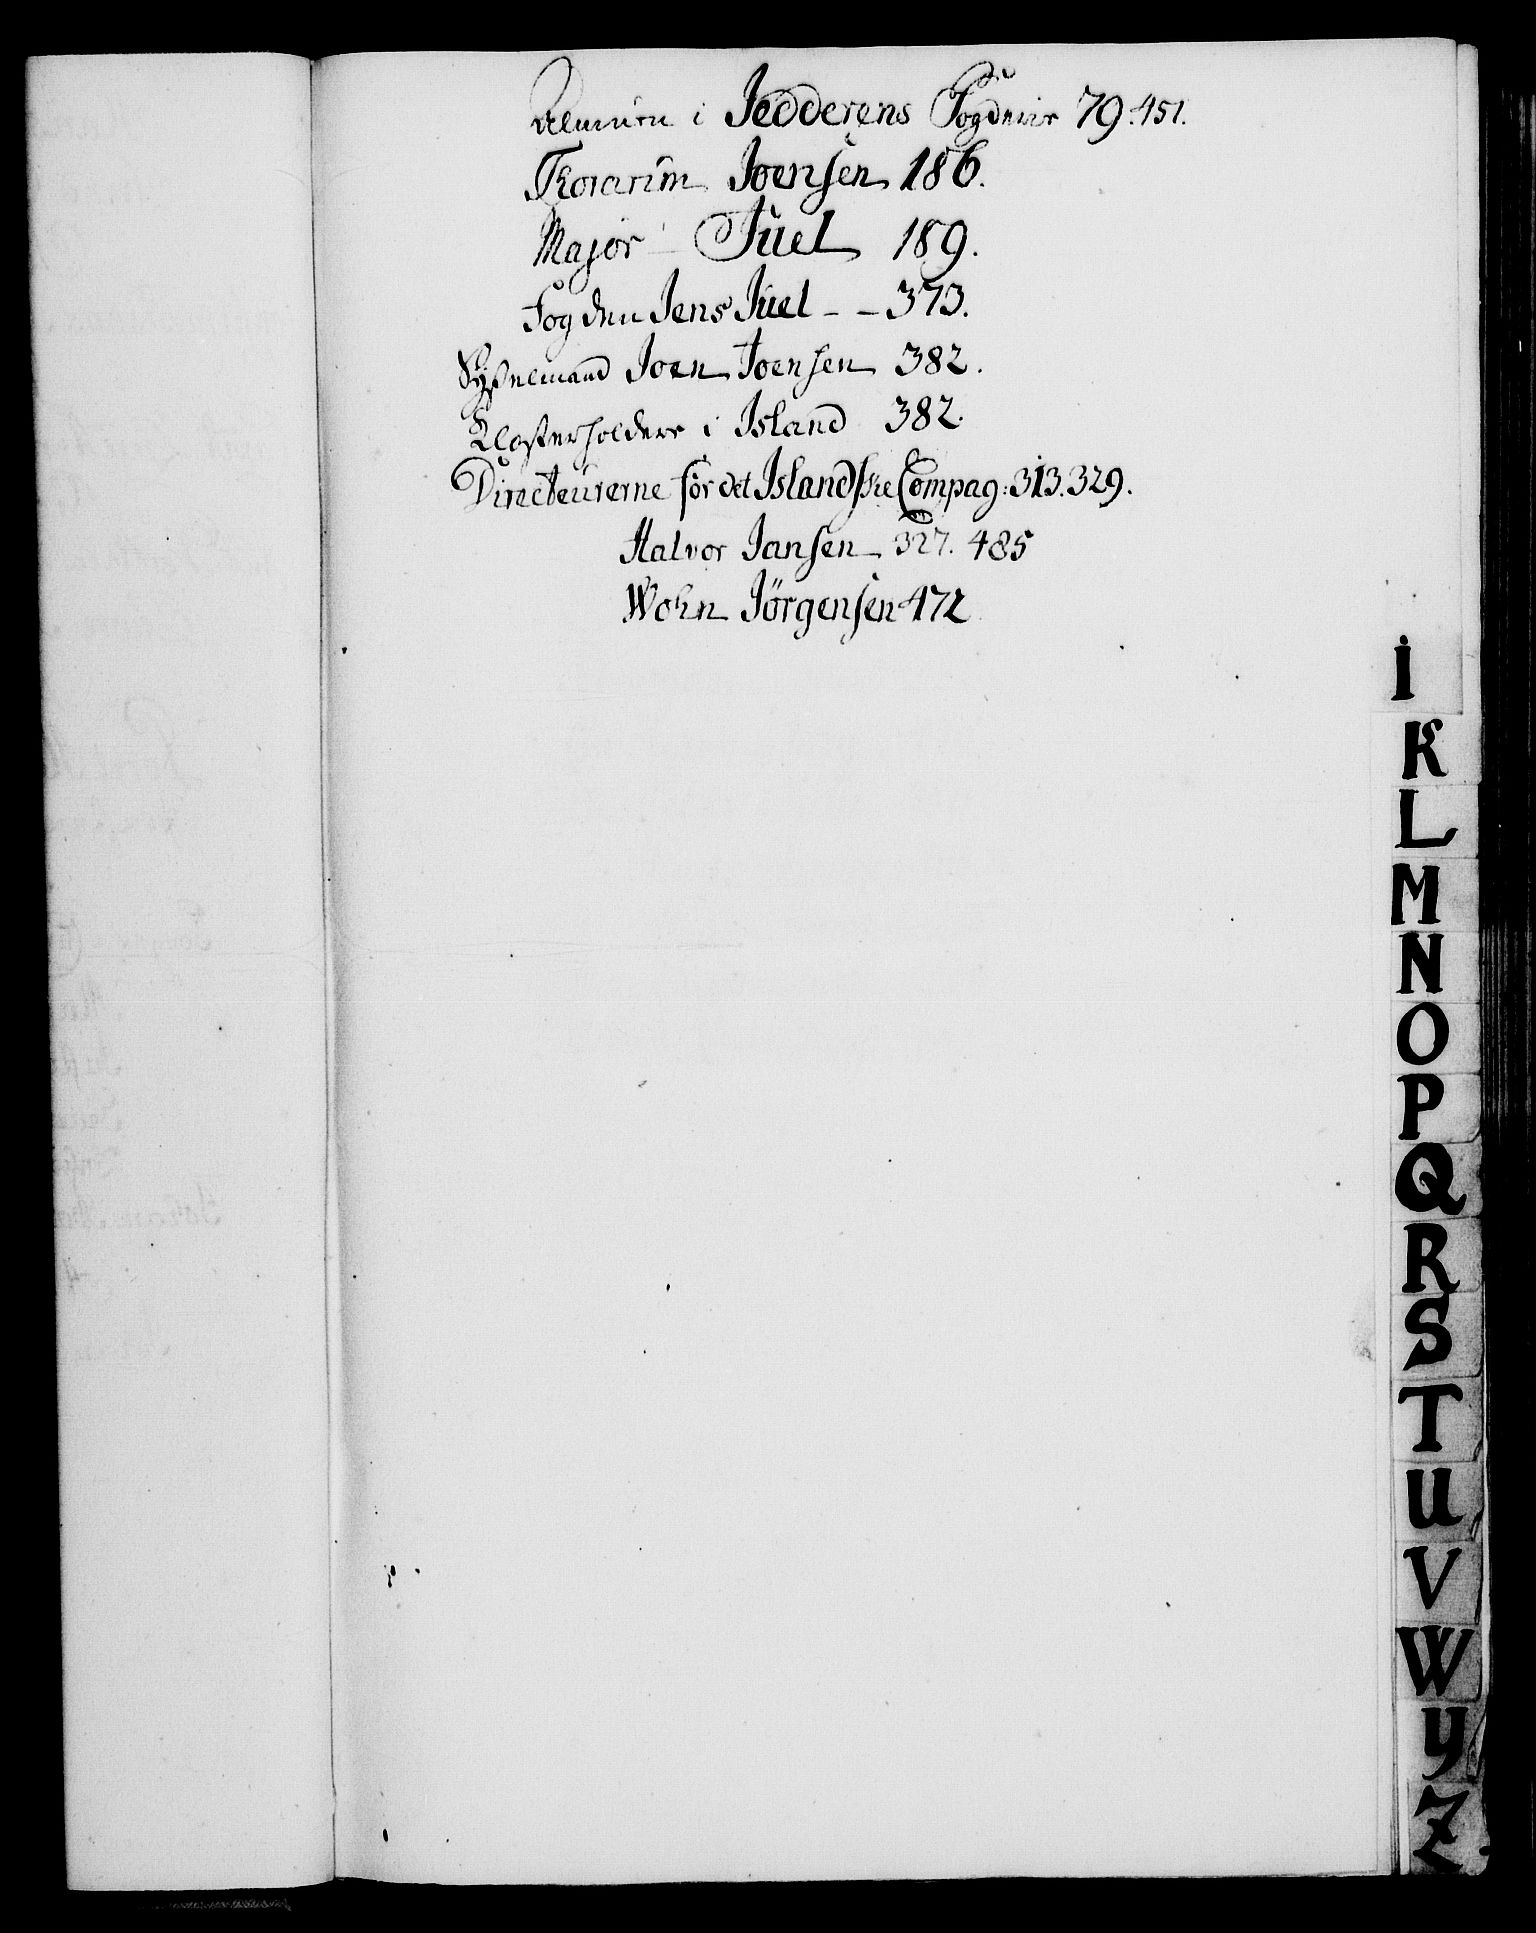 Almuen i Jedderens Fogderie 79. 451.
Thorarim Joensen 186.
Major Juel 189.
Fogden Jens Juel - - 373.
Sysselmand Joen Joensen 382.
Klosterholdere i Island 382.
Directeurerne for det Islandske Compag: 313. 329.
Halvor Jansen 327. 485
Wohn Jörgensen 472
I
K
L
M
N
O
P
Q
R
S
T
U
V
W
Y
Z